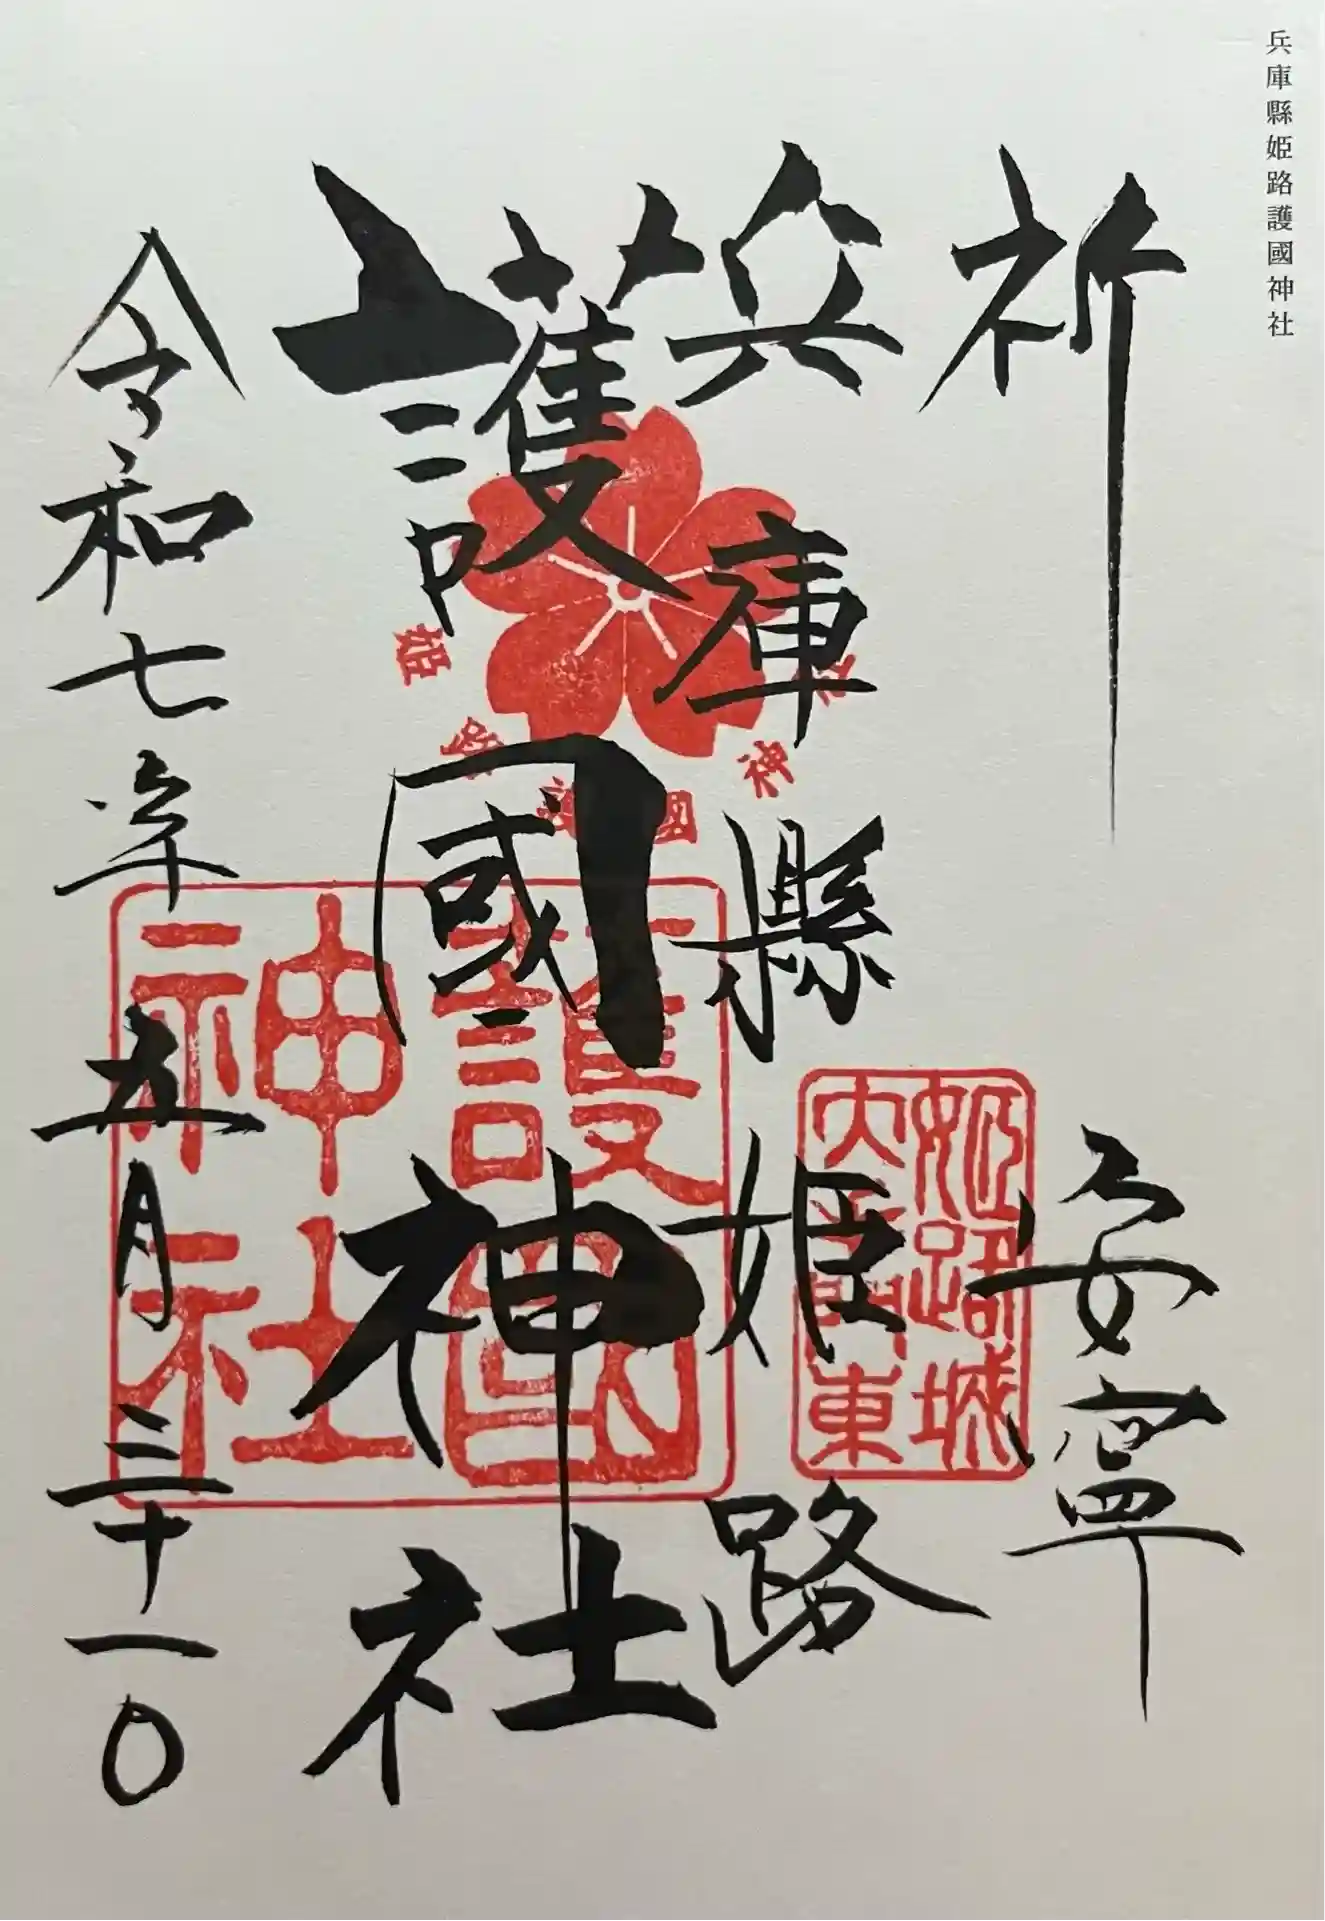 兵庫縣姫路護國神社
祈 安寧
兵庫縣姫路
護國神社
令和七年五月三十一日
姫路護國神社
姫路城
大手門東
護國
神社